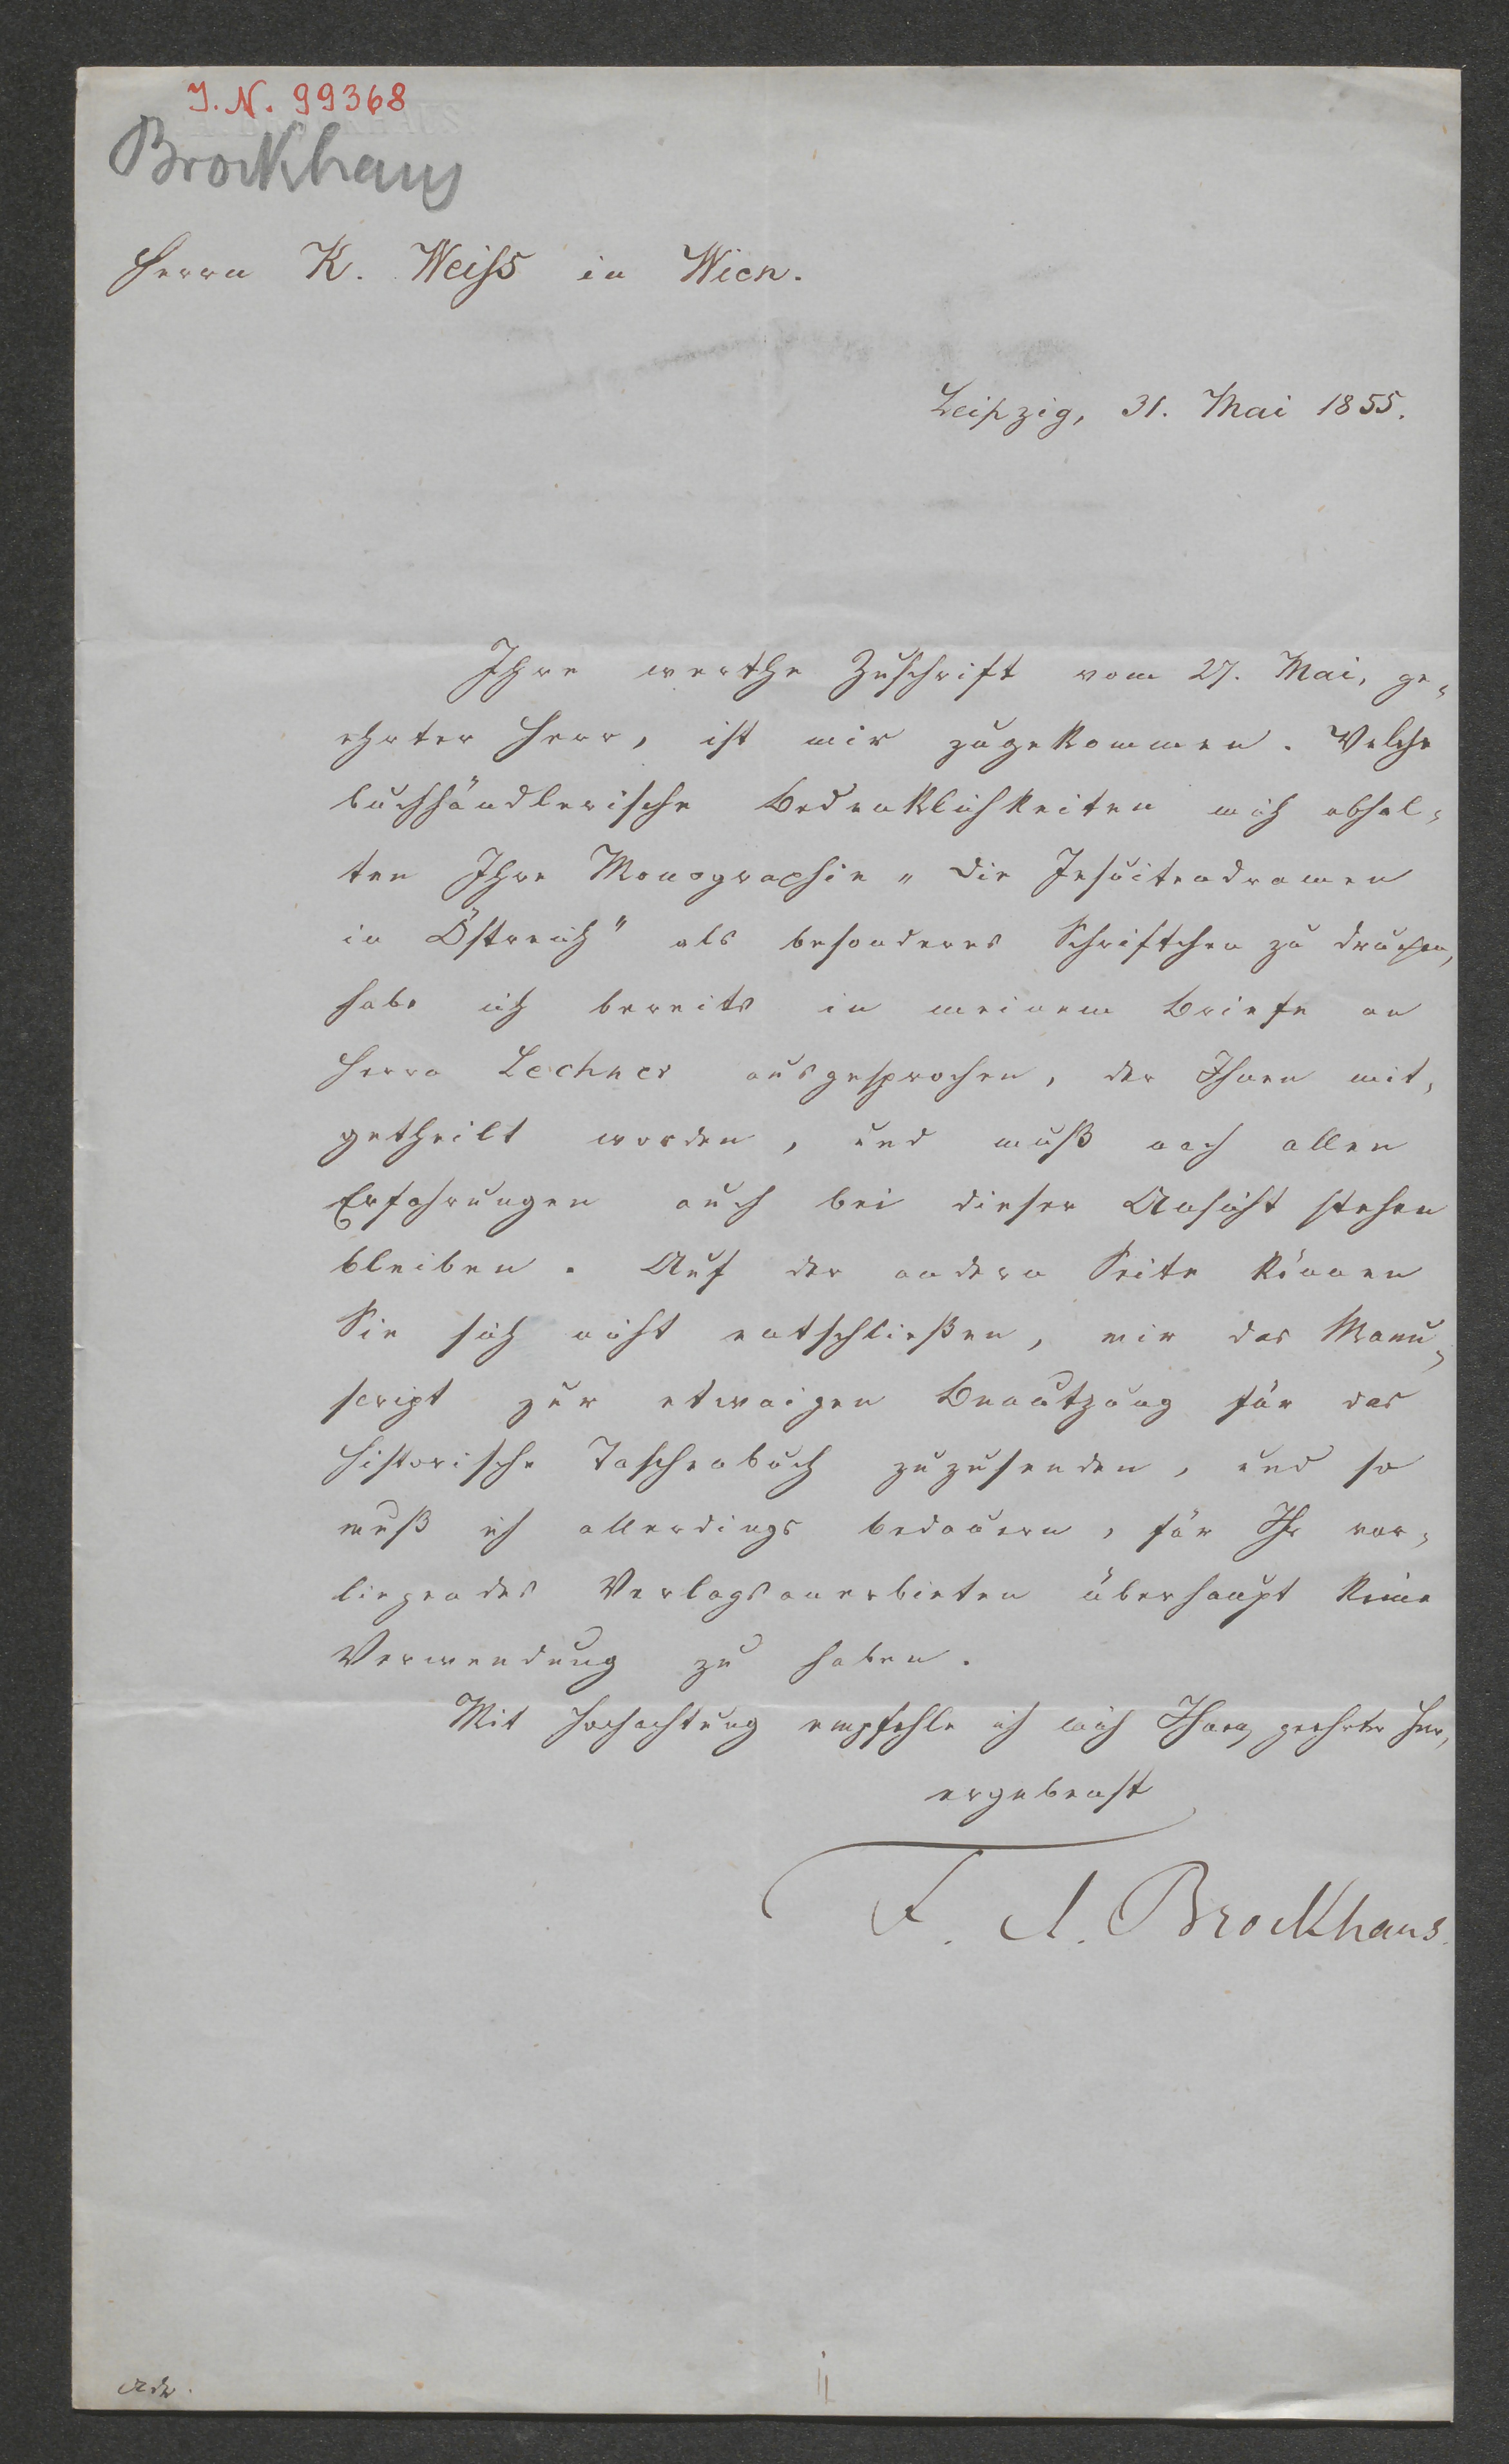 J. N. 99368
Brockhaus
Herrn K. Weiss in Wien.
Leipzig, 31. Mai 1855.
Ihre werthe Zuschrift vom 27. Mai, ge-
ehrter Herr, ist mir zugekommen. Welche
buchhändlerische Bedenklichkeiten mich abhal-
ten Ihre Monographie „Die Jesuitendramen
in Östreich" als besonderes Schriftchen zu drucken,
habe ich bereits in meinem Briefe an
Herrn Lechner ausgesprochen, der Ihnen mit-
getheilt worden, und muß nach allen
Erfahrungen auch bei dieser Ansicht stehen
bleiben. Auf der andern Seite können
Sie sich nicht entschließen, mir das Manu-
script zur etwaigen Benutzung für das
Historische Taschenbuch zuzusenden, und so
muß ich allerdings bedauern, für Ihr vor-
liegendes Verlagsanerbieten überhaupt keine
Verwendung zu haben.
Mit Hochachtung empfehle ich mich Ihnen, geehrter Herr,
ergebenst
F. A. Brockhaus.